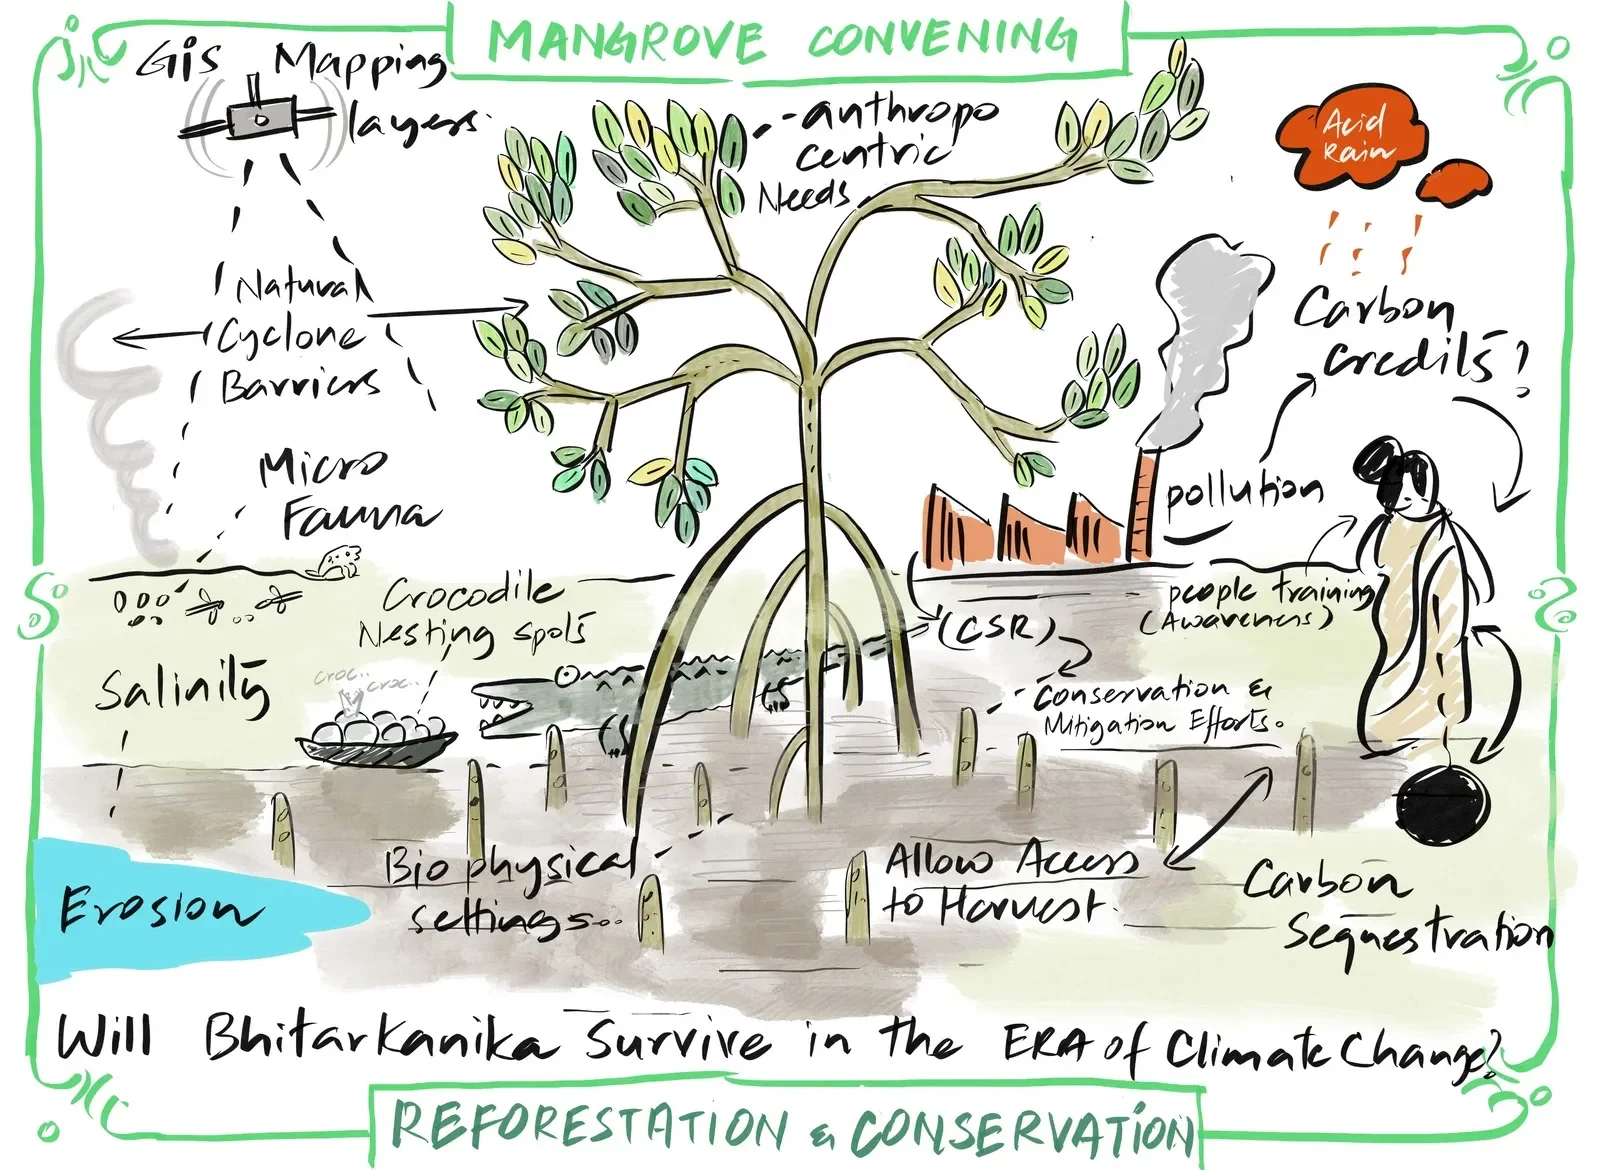 MANGROVE CONVENING
GIS Mapping
layers.
- anthropo
centric
Needs
Acid
Rain
Natural
Cyclone
Barriers
Carbon
Credits?
Micro
Fauna
pollution
Crocodile
Nesting spots
people training
(Awareness)
(CSR)
Salinity
croc..
croc..
Conservation &
Mitigation Efforts.
Bio physical
settings...
Allow Access
to Harvest.
Carbon
Sequestration
Erosion
Will Bhitarkanika Survive in the ERA of Climate Change?
REFORESTATION & CONSERVATION